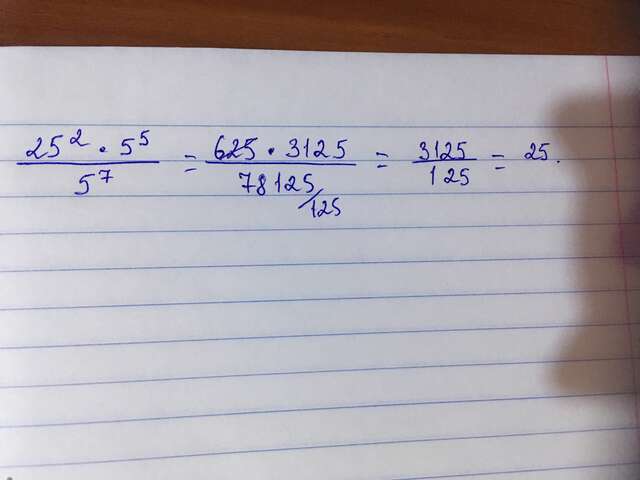 25² · 5⁵ / 5⁷ = 625 · 3125 / 78125 /125 = 3125 / 125 = 25.